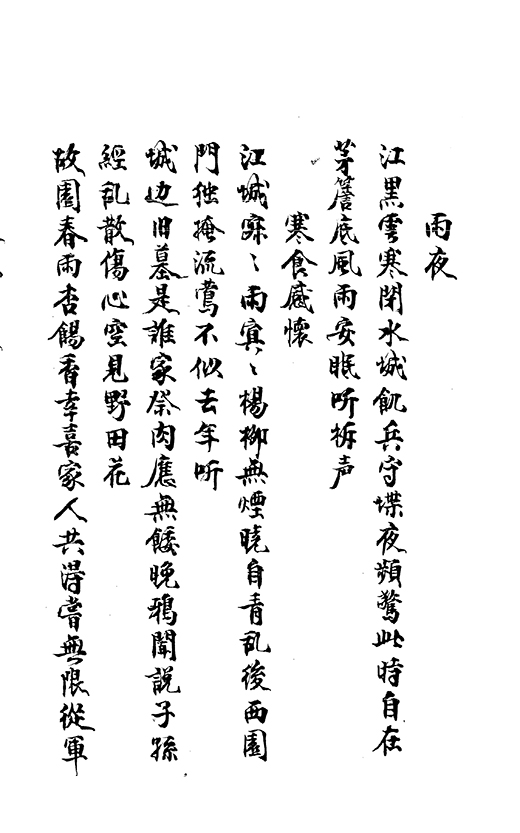 雨夜
江黒雲寒閉水城飢兵守堞夜頻驚此時自在
茅簷底風雨安眠听柝声
寒食感懐
江城寐〻雨冥〻楊柳無煙曉自青乱後西園
門独掩流鶯不似去年听
城边旧墓是誰家祭肉應無餧晚鴉聞説子孫
經乱散傷心空見野田花
故園春雨杏餳香幸喜家人共得嘗無限從軍